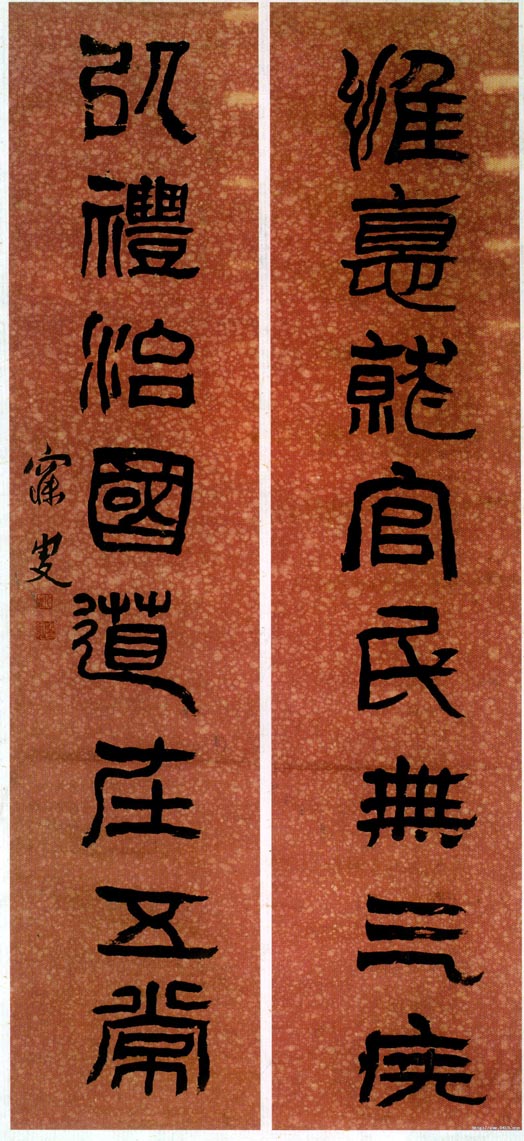 惟悳就官民無三疾
以禮治國道在五常
寐叟